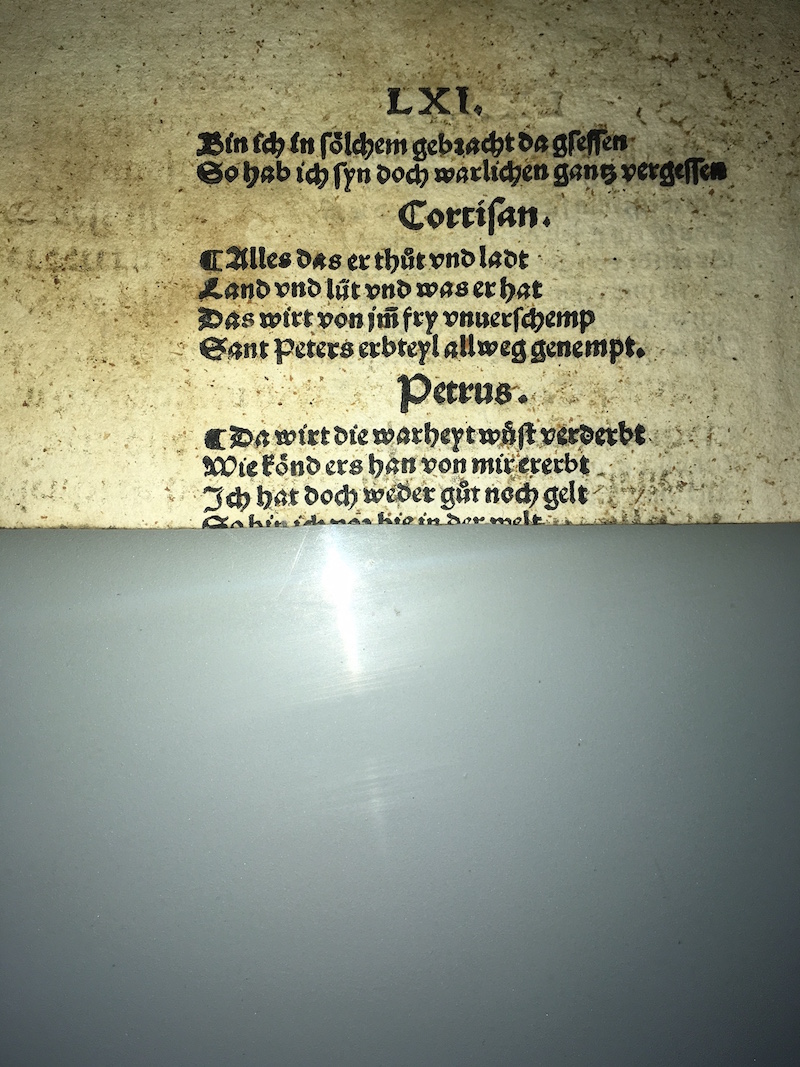 LXI.
Bin ich in sölchem gebracht da gsessen
So hab ich syn doch warlichen gantz vergessen
Cortisan.
¶ Alles das er thůt vnd ladt
Land vnd lüt vnd was er hat
Das wirt von jm̄ fry vnuerschemp
Sant Peters erbteyl allweg genempt.
Petrus.
¶ Da wirt die warheyt wůst verderbt
Wie könd ers han von mir ererbt
Ich hat doch weder gůt noch gelt
So bin ich vor hie in der welt